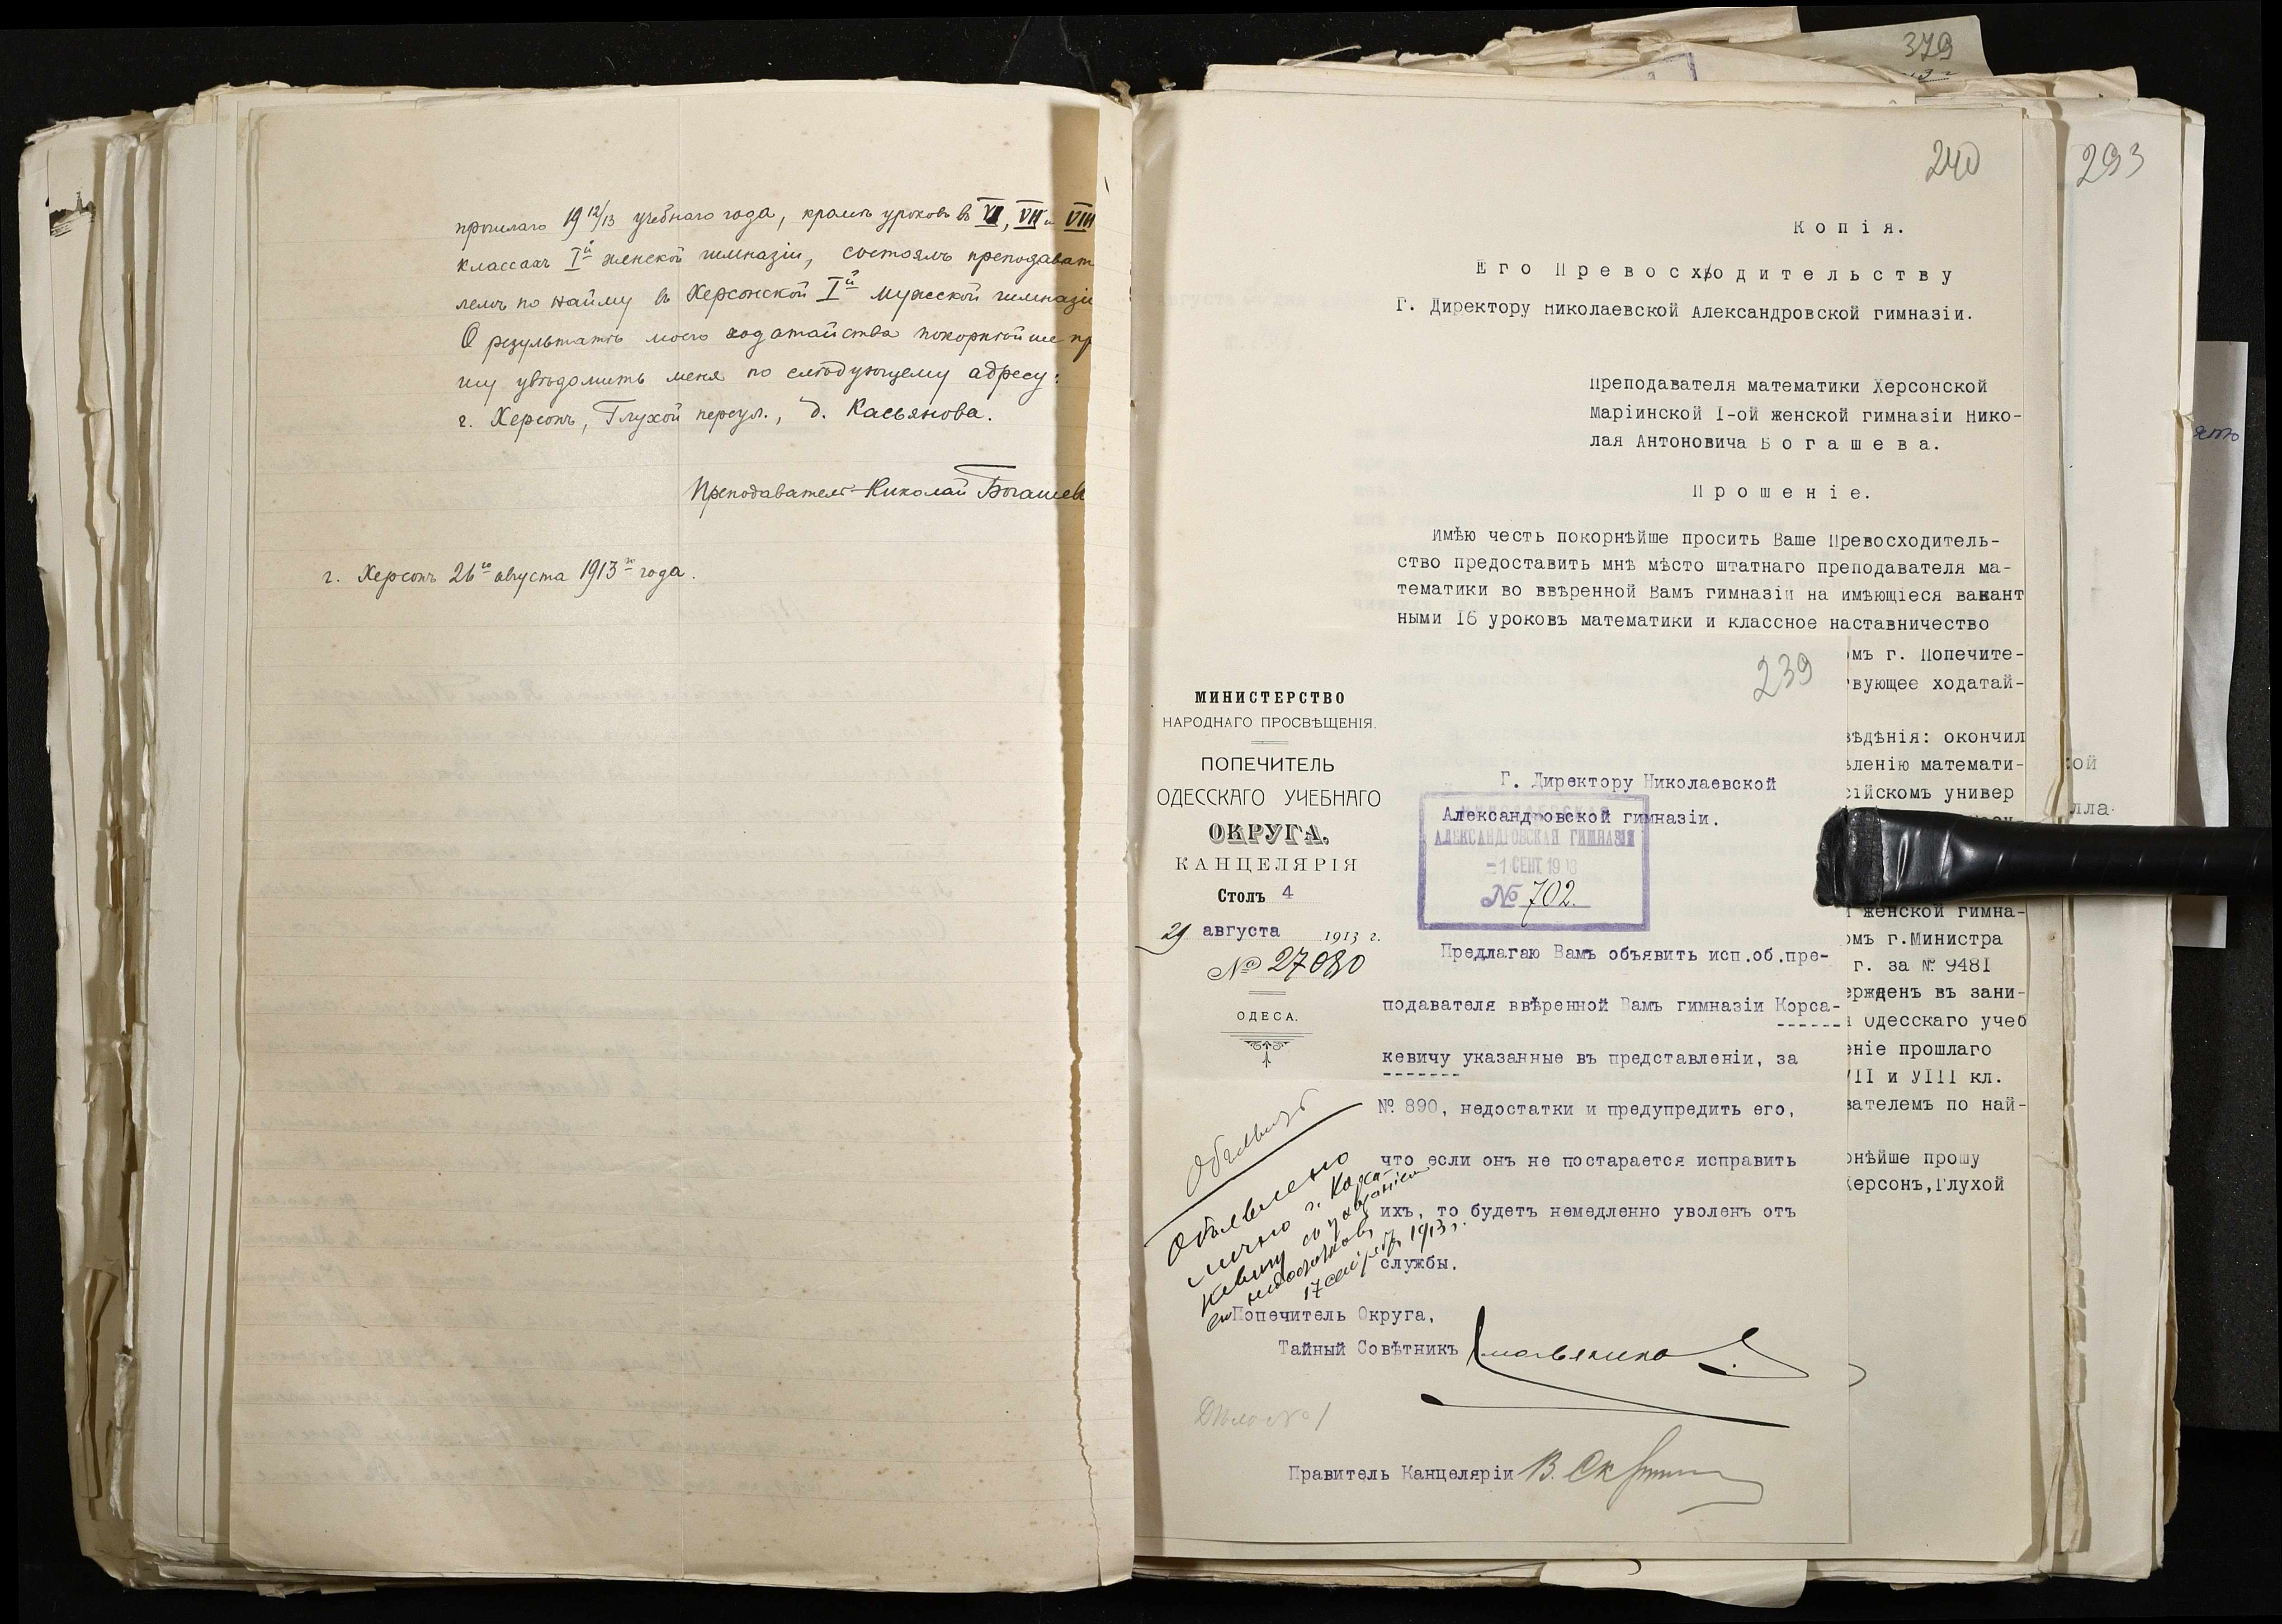 прошлаго 19 12/13 учебнаго года, кромѣ уроковъ въ VI, VII и VIII
классахъ Iй женской гимназіи, состоялъ преподават
лемъ по найму въ Херсонской Iй мужской гимназіи
О результатѣ моего ходатайства покорнѣйше пр
шу увѣдомить меня по слѣдующему адресу:
г. Херсонъ, Глухой переул., д. Касьянова.
Преподаватель Николай Богашевъ
г. Херсонъ 26го августа 1913го года.
379
240
293
Копія.
Его Превосходительству
Г. Директору Николаевской Александровской гимназіи.
Преподавателя математики Херсонской
Маріинской I-ой женской гимназіи Нико-
лая Антоновича Богашева.
Прошеніе.
Имѣю честь покорнѣйше просить Ваше Превосходитель-
ство предоставить мнѣ мѣсто штатнаго преподавателя ма-
тематики во ввѣренной Вамъ гимназіи на имѣющіеся вакант
ными 16 уроковъ математики и классное наставничество
омъ г. Попечите-
твующее ходатай-
вѣдѣнія: окончил
ѣленію математи-
сійскомъ универ
женской гимна-
омъ г.Министра
г. за № 9481
ержденъ въ зани-
Одесскаго учеб
еніе прошлаго
VII и УIII кл.
вателемъ по най-
рнѣйше прошу
Херсонъ,Глухой
кой
лла-
239
МИНИСТЕРСТВО
НАРОДНАГО ПРОСВѢЩЕНІЯ.
ПОПЕЧИТЕЛЬ
ОДЕССКАГО УЧЕБНАГО
ОКРУГА.
КАНЦЕЛЯРІЯ
Столъ 4
29 августа 1913 г.
№ 27080
ОДЕСА.
Г. Директору Николаевской
Александровской гимназіи.
НИКОЛАЕВСКАЯ
АЛЕКСАНДРОВСКАЯ ГИМНАЗІЯ
-1 СЕНТ 1913
№ 702.
Предлагаю Вамъ объявить исп.об.пре-
подавателя ввѣренной Вамъ гимназіи Корса-
кевичу указанные въ представленіи, за
№ 890, недостатки и предупредить его,
что если онъ не постарается исправить
ихъ, то будетъ немедленно уволенъ отъ
службы.
Объявить
Объявлено
лично г. Корса-
кевичу съ указаніемъ
его недостатковъ
17 сентября 1913 г.
Попечитель Округа,
Тайный Совѣтникъ
Дѣло № 1
Правитель Канцеляріи В.